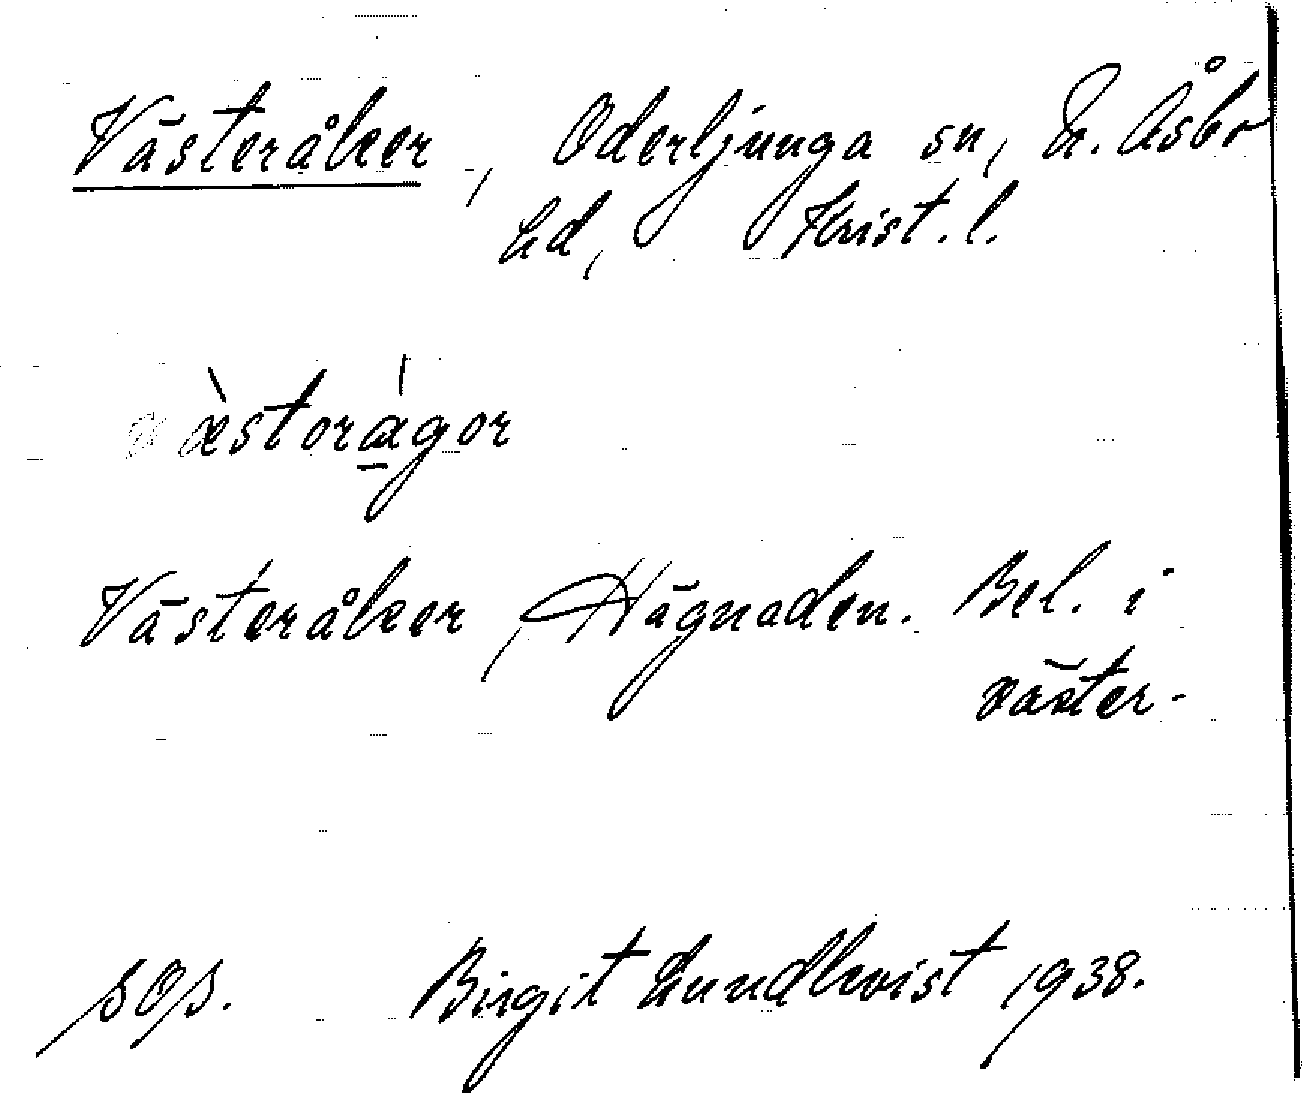 Västeråker, Oderljunga sn, N. Åsbo
hd, Krist. l.
væ̀storá̱gor
Västeråker, Hägnaden. Bel. i
väster-
sgs. Birgit Lundkvist 1938.